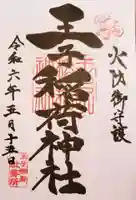 火防御守護
王子稲荷神社
令和六年五月十五日